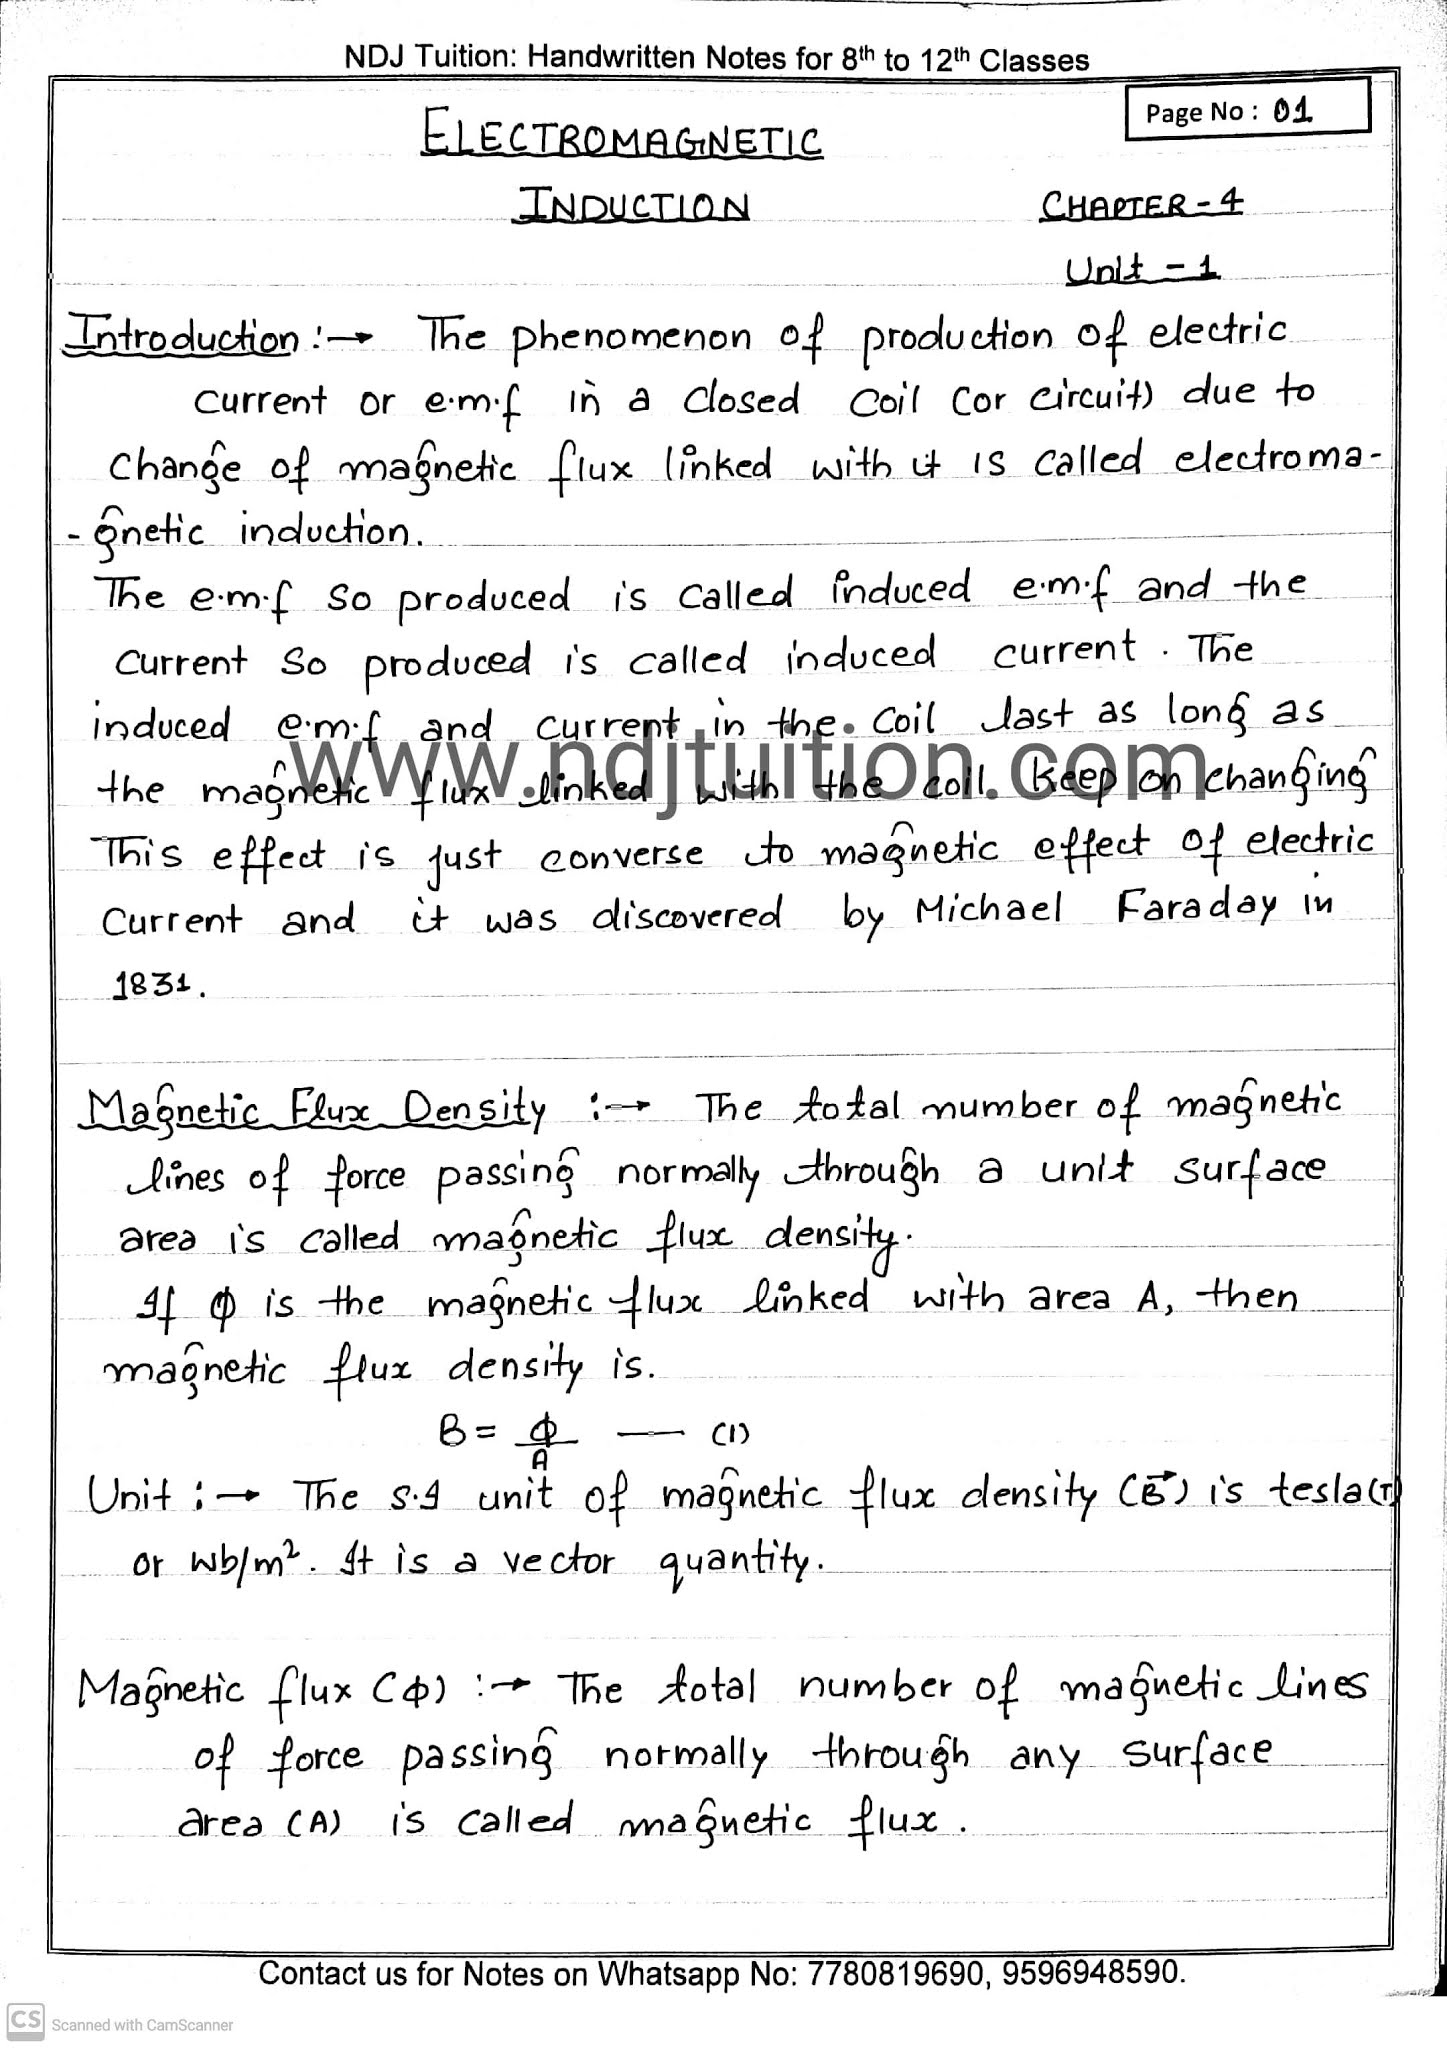 NDJ Tuition: Handwritten Notes for 8th to 12th Classes
Page No : 01
ELECTROMAGNETIC
INDUCTION
CHAPTER - 4
Unit - 1
Introduction :→ The phenomenon of production of electric
current or e.m.f in a closed coil (or circuit) due to
change of magnetic flux linked with it is called electroma-
- gnetic induction.
The e.m.f so produced is called induced e.m.f and the
current so produced is called induced current. The
induced e.m.f and current in the coil last as long as
www.ndjtuition.com
the magnetic flux linked with the coil keep on changing
This effect is just converse to magnetic effect of electric
current and it was discovered by Michael Faraday in
1831.
Magnetic Flux Density :→ The total number of magnetic
lines of force passing normally through a unit surface
area is called magnetic flux density.
If Φ is the magnetic flux linked with area A, then
magnetic flux density is.
B = Φ/A — (1)
Unit :→ The S.I unit of magnetic flux density (B⃗) is tesla(T)
or wb/m². It is a vector quantity.
Magnetic flux (Φ) :→ The total number of magnetic lines
of force passing normally through any surface
area (A) is called magnetic flux.
Contact us for Notes on Whatsapp No: 7780819690, 9596948590.
CS Scanned with CamScanner